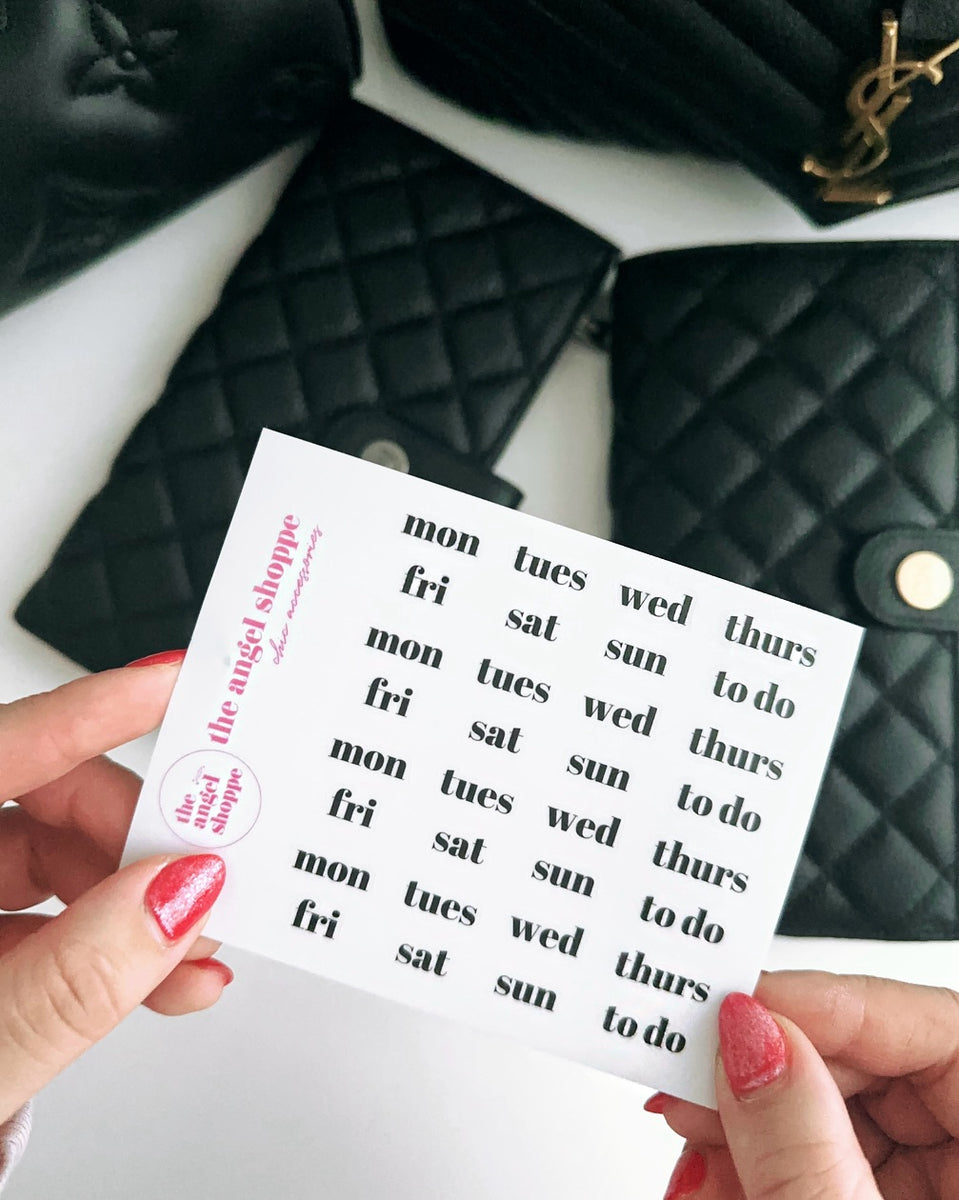 the angel shoppe
chic accessories
the
angel
shoppe
mon tues wed thurs
fri sat sun to do
mon tues wed thurs
fri sat sun to do
mon tues wed thurs
fri sat sun to do
mon tues wed thurs
fri sat sun to do
YSL